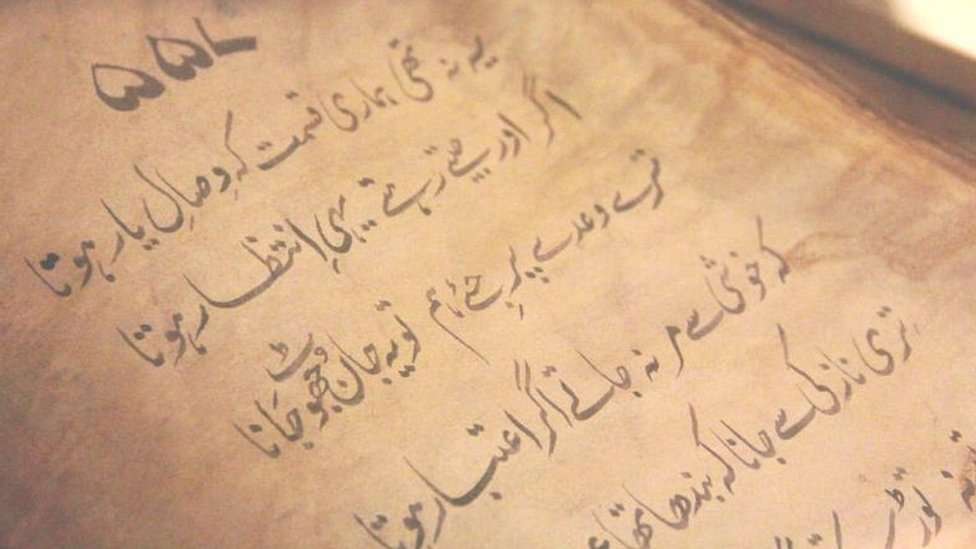 یہ نہ تھی ہماری قسمت کہ وِصالِ یار ہوتا
اگر اور جیتے رہتے یہی اِنتظار ہوتا
ترے وعدے پر جئے ہم تو یہ جان جُھوٹ جَانا
کہ خوشی سے مر نہ جاتے اگر اعتبار ہوتا
تِری نازکی سے جانا کہ بندھا تھا
نہ توڑ